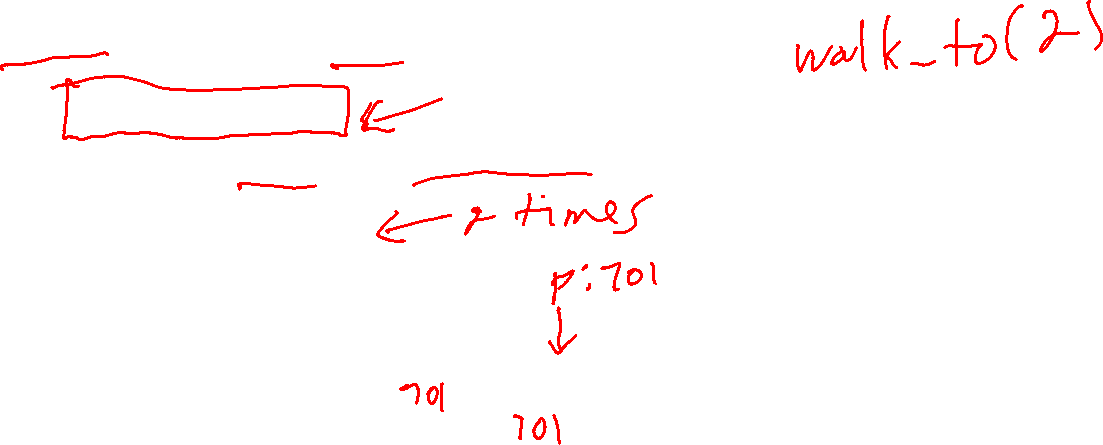 walk_to(2)
2 times
p:701
701
701